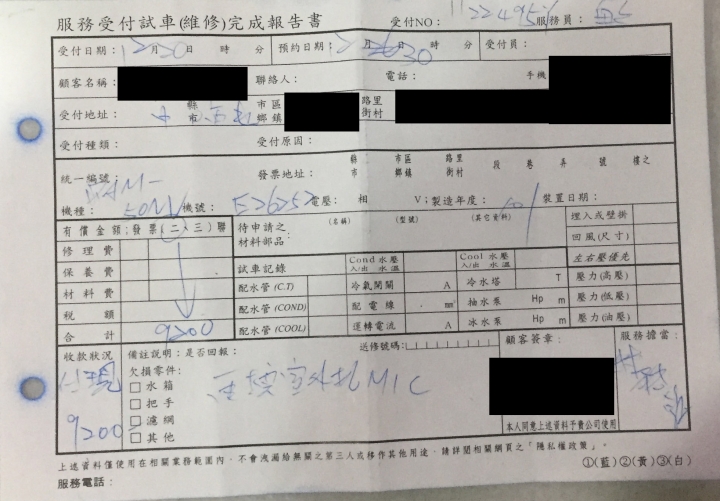 服務受付試車(維修)完成報告書 受付NO: 服務員:
受付日期: 月30日 時 分 預約日期: 月 日 時 分 受付員:
顧客名稱: 聯絡人: 電話: 手機
受付地址: 縣市 市區鄉鎮 路里街村
受付種類: 受付原因:
統一編號: 發票地址: 縣市 市區鄉鎮 路里街村 段 巷 弄 號 樓之
機種: 50MV 機號: 電壓: 相 V;製造年度: 裝置日期:
有償金額;發票(二、三)聯 待申請之材料部品: (名稱) (型號) (其它資料) 埋入或壁掛
修理費 回風(尺寸)
保養費 試車記錄 Cond水壓入/出 水溫 Cool水壓入/出 水溫 左右壓優先
材料費 配水管(C.T) 冷氣開關 A 冷水塔 T 壓力(高壓)
稅額 配水管(COND) 配電線 mm² 抽水泵 Hp m 壓力(低壓)
合計 9200 配水管(COOL) 運轉電流 A 冰水泵 Hp m 壓力(油壓)
收款狀況 備註說明:是否回報: 送修號碼: 顧客簽章: 服務擔當:
付現 欠損零件:
□水箱 室外機MIC
□把手
9200 □濾網
□其他 本人同意上述資料予貴公司使用
上述資料僅使用在相關業務範圍內,不會洩漏給無關之第三人或移作其他用途,請詳閱相關網頁之「隱私權政策」。
服務電話: ①(藍)②(黃)③(白)